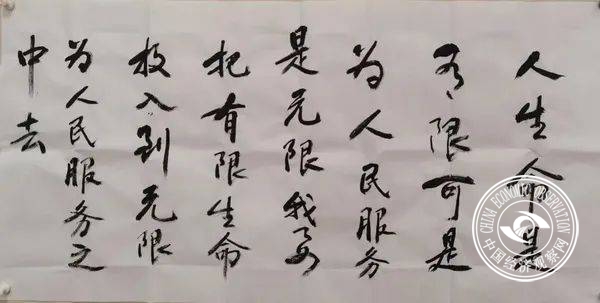 人生命是
有限可是
为人民服务
是无限我要
把有限生命
投入到无限
为人民服务之
中去
CHINA ECONOMIC OBSERVATION
中国经济观察网